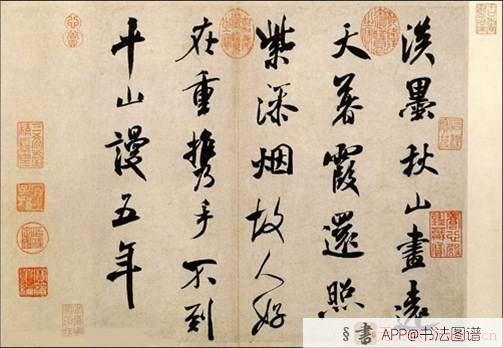 淡墨秋山畫遠
天暮霞還照
紫添烟故人好
在重攜手不到
平山謾五年
書 APP@书法图谱